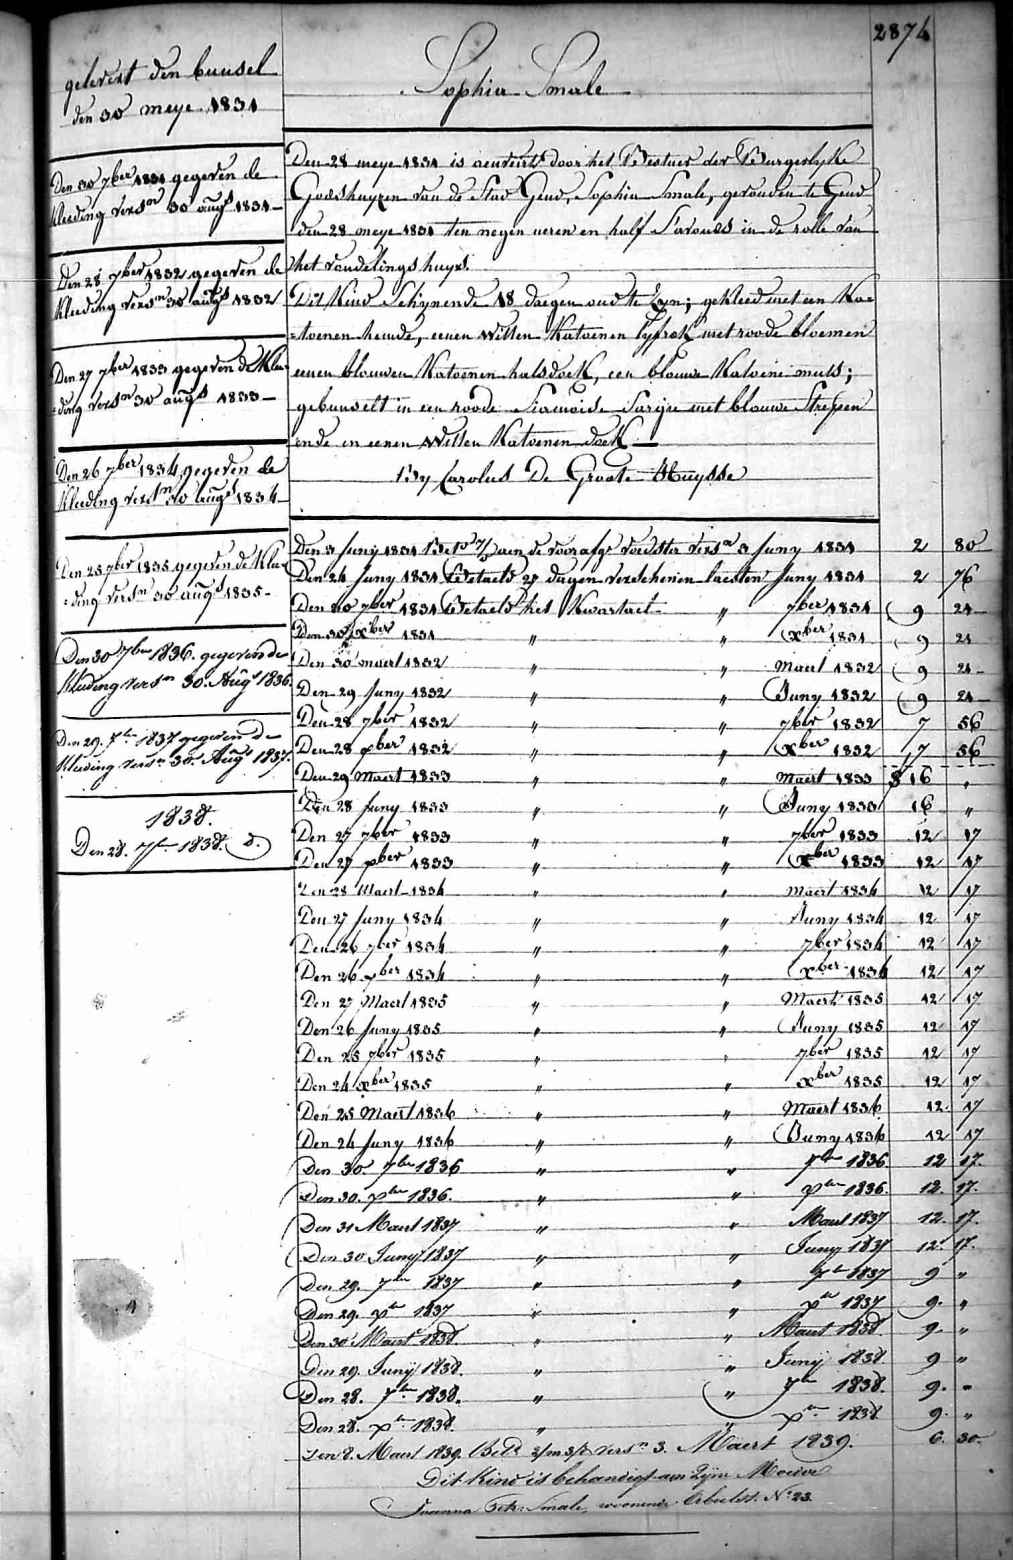 2874
gelevert den bunsel
den 30 meye 1831
Den 30 7ber 1831 gegeven de
kleeding versn 30 augs 1831
Den 28 7ber 1832 gegeven de
kleeding versn 30 augs 1832
Den 27 7ber 1833 gegeven de klee-
=ding versn 30 augs 1833
Den 26 7ber 1834 gegeven de
kleeding versn 30 augs 1834
Den 25 7ber 1835 gegeven de klee-
=ding versn 30 augs 1835
Den 30 7ber 1836. gegeven de
kleeding versn 30. Augs 1836.
Den 29. 7ber 1837 gegeven de
kleeding versn 30. Augs 1837.
1838.
Den 28. 7ber 1838. d.
Sophia Smale
Den 28 meye 1831 is aenveirt door het Bestuer der Burgerlyke
Godshuyzen van de Stad Gend, Sophia Smale, gevonden te Gend
den 28 meye 1831 ten negen ueren en half S'avonds in de rolle van
het vondelings huys.
Dit Kind Schynende 18 daegen oud te zyn; gekleed met een Ka-
=toenen hemde, eenen witten Katoenen lyfrok met roode bloemen
eenen blauwen Katoenen halsdoek, een blauwe Katoene muts;
gebunselt in een roode Siamoise Sargie met blauwe Strepen
ende in eenen witten Katoenen doek
By Carolus De Groote Huysse
Den 3 Juny 1831 Bet aen de voorafge voedster versn 3 Juny 1831 2 80
Den 24 Juny 1831 Betaeld 27 dagen verschenen laesten Juny 1831 2 76
Den 30 7ber 1831 Betaeld het Kwartael " 7ber 1831 9 24
Den 30 xber 1831 " " xber 1831 9 24
Den 30 maert 1832 " " Maert 1832 9 24
Den 29 Juny 1832 " " Juny 1832 9 24
Den 28 7ber 1832 " " 7ber 1832 7 56
Den 28 xber 1832 " " xber 1832 7 56
Den 29 Maert 1833 " " Maert 1833 16 "
Den 28 Juny 1833 " " Juny 1833 16 "
Den 27 7ber 1833 " " 7ber 1833 12 17
Den 27 xber 1833 " " xber 1833 12 17
Den 28 Maert 1834 " " maert 1834 12 17
Den 27 Juny 1834 " " Juny 1834 12 17
Den 26 7ber 1834 " " 7ber 1834 12 17
Den 26 xber 1834 " " xber 1834 12 17
Den 27 Maert 1835 " " Maert 1835 12 17
Den 26 Juny 1835 " " Juny 1835 12 17
Den 25 7ber 1835 " " 7ber 1835 12 17
Den 24 xber 1835 " " xber 1835 12 17
Den 25 Maert 1836 " " Maert 1836 12. 17
Den 24 Juny 1836 " " Juny 1836 12 17
Den 30. 7ber 1836 " " 7ber 1836 12 17.
Den 30. xber 1836. " " xber 1836. 12. 17.
Den 31 Maert 1837 " " Maert 1837 12. 17.
Den 30 Juny 1837 " " Juny 1837 12. 17.
Den 29. 7ber 1837 " " 7ber 1837 9 "
Den 29. xber 1837 " " xber 1837 9. "
Den 30 Maert 1838. " " Maert 1838. 9. "
Den 29. Juny 1838. " " Juny 1838. 9 "
Den 28. 7ber 1838. " " 7ber 1838. 9. "
Den 28. xber 1838. " " xber 1838 9. "
Den 8. Maert 1839. Betd versn 3. Maert 1839. 6. 30.
Dit Kind is behandigt aen Zijne Moeder
Joanna Smale, woonende No 23.